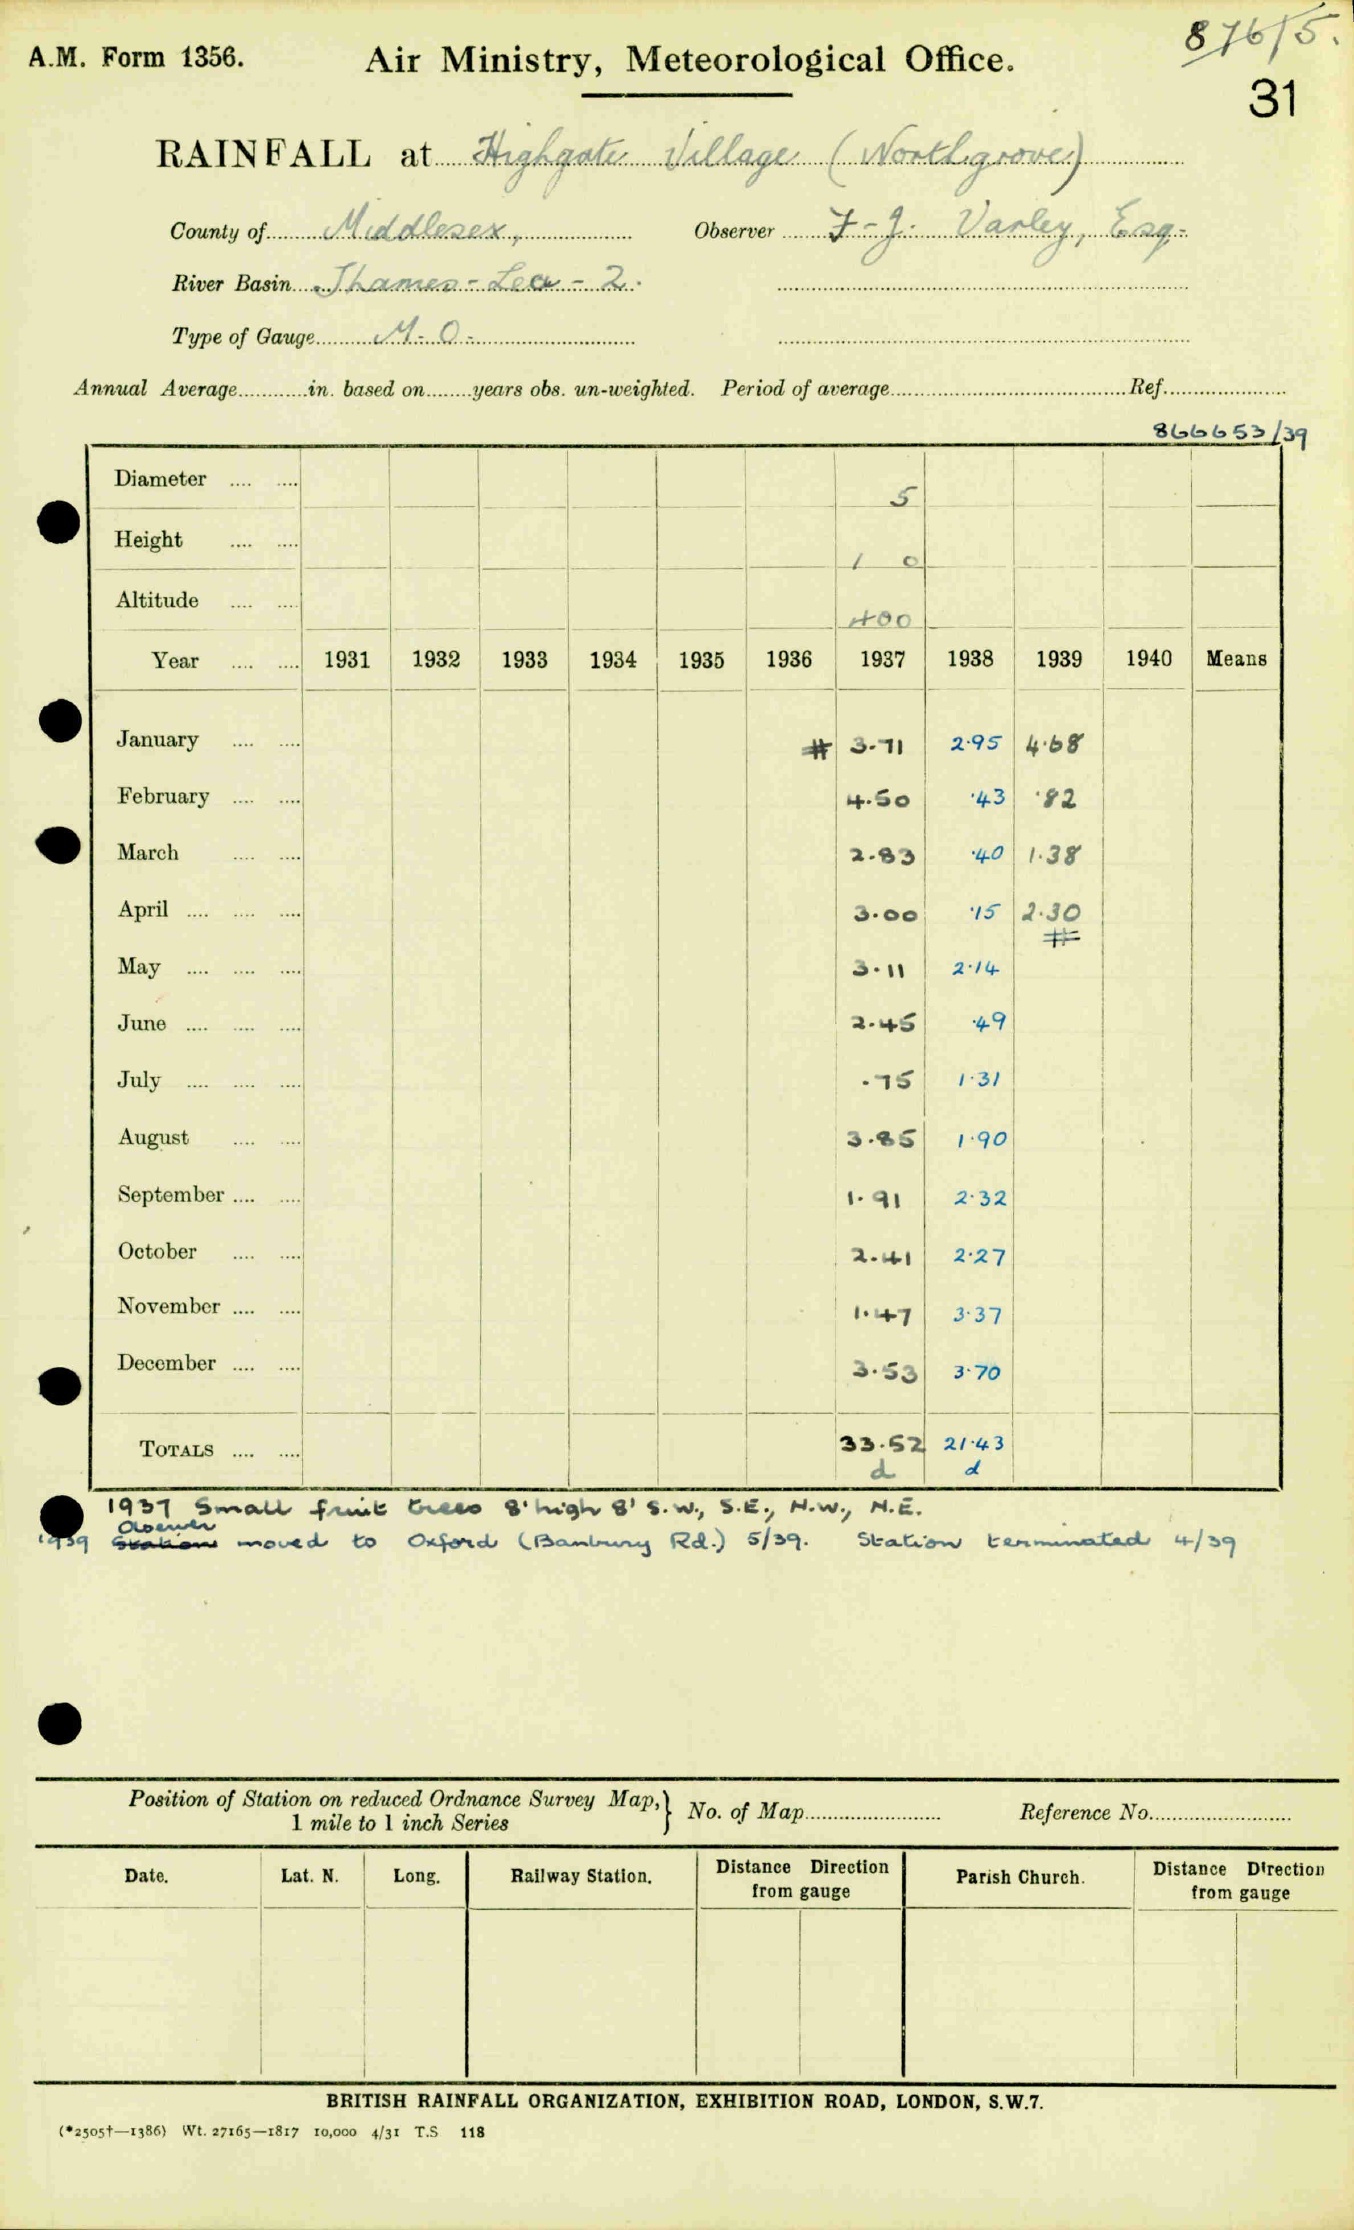 876/5.
A.M. Form 1356. Air Ministry, Meteorological Office.
31
RAINFALL at Highgate Village (Northgrove)
County of Middlesex, Observer F-J. Varley, Esq.
River Basin Thames-Lea-2.
Type of Gauge M.O.
Annual Average............in. based on........years obs. un-weighted. Period of average.......... Ref..........
866653/39
Diameter .... .... 5
Height .... .... 1 0
Altitude .... .... 400
Year .... .... 1931 1932 1933 1934 1935 1936 1937 1938 1939 1940 Means
January .... .... # 3.71 2.95 4.68
February .... .... 4.50 .43 .82
March .... .... 2.83 .40 1.38
April .... .... .... 3.00 .15 2.30
#
May .... .... .... 3.11 2.14
June .... .... .... 2.45 .49
July .... .... .... .75 1.31
August .... .... 3.85 1.90
September .... .... 1.91 2.32
October .... .... 2.41 2.27
November .... .... 1.47 3.37
December .... .... 3.53 3.70
TOTALS .... .... 33.52 21.43
d d
1937 Small fruit trees 8' high 8' S.W., S.E., N.W., N.E.
Observer
1939 Station moved to Oxford (Banbury Rd.) 5/39. Station terminated 4/39
Position of Station on reduced Ordnance Survey Map, } No. of Map.......... Reference No..........
1 mile to 1 inch Series
Date. Lat. N. Long. Railway Station. Distance Direction from gauge Parish Church. Distance Direction from gauge
BRITISH RAINFALL ORGANIZATION, EXHIBITION ROAD, LONDON, S.W.7.
(*2505†—1386) Wt. 27165—1817 10,000 4/31 T.S 118